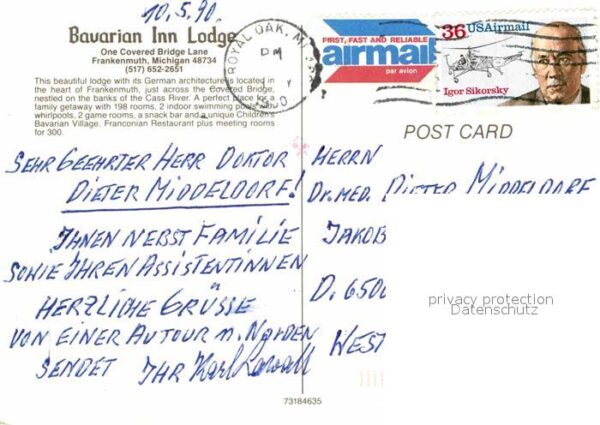 10.5.90.
Bavarian Inn Lodge
One Covered Bridge Lane
Frankenmuth, Michigan 48734
(517) 652-2651
This beautiful lodge with its German architecture is located
in the heart of Frankenmuth, just across the Covered Bridge,
nestled on the banks of the Cass River. A perfect place for a
family getaway with 198 rooms, 2 indoor swimming pools,
whirlpools, 2 game rooms, a snack bar and a unique Children's
Bavarian Village. Franconian Restaurant plus meeting rooms
for 300.
ROYAL OAK, MI
PM
FIRST, FAST AND RELIABLE
airmail
par avion
36 USAirmail
Igor Sikorsky
POST CARD
SEHR GEEHRTER HERR DOKTOR
DIETER MIDDELDORF!
IHNEN NEBST FAMILIE
SOWIE IHREN ASSISTENTINNEN
HERZLICHE GRÜSSE
VON EINER AUTOUR n. NORDEN
SENDET IHR Karl
HERRN
Dr. MED. DIETER MIDDELDORF
JAKOB
D. 6500
WEST
privacy protection
Datenschutz
73184635